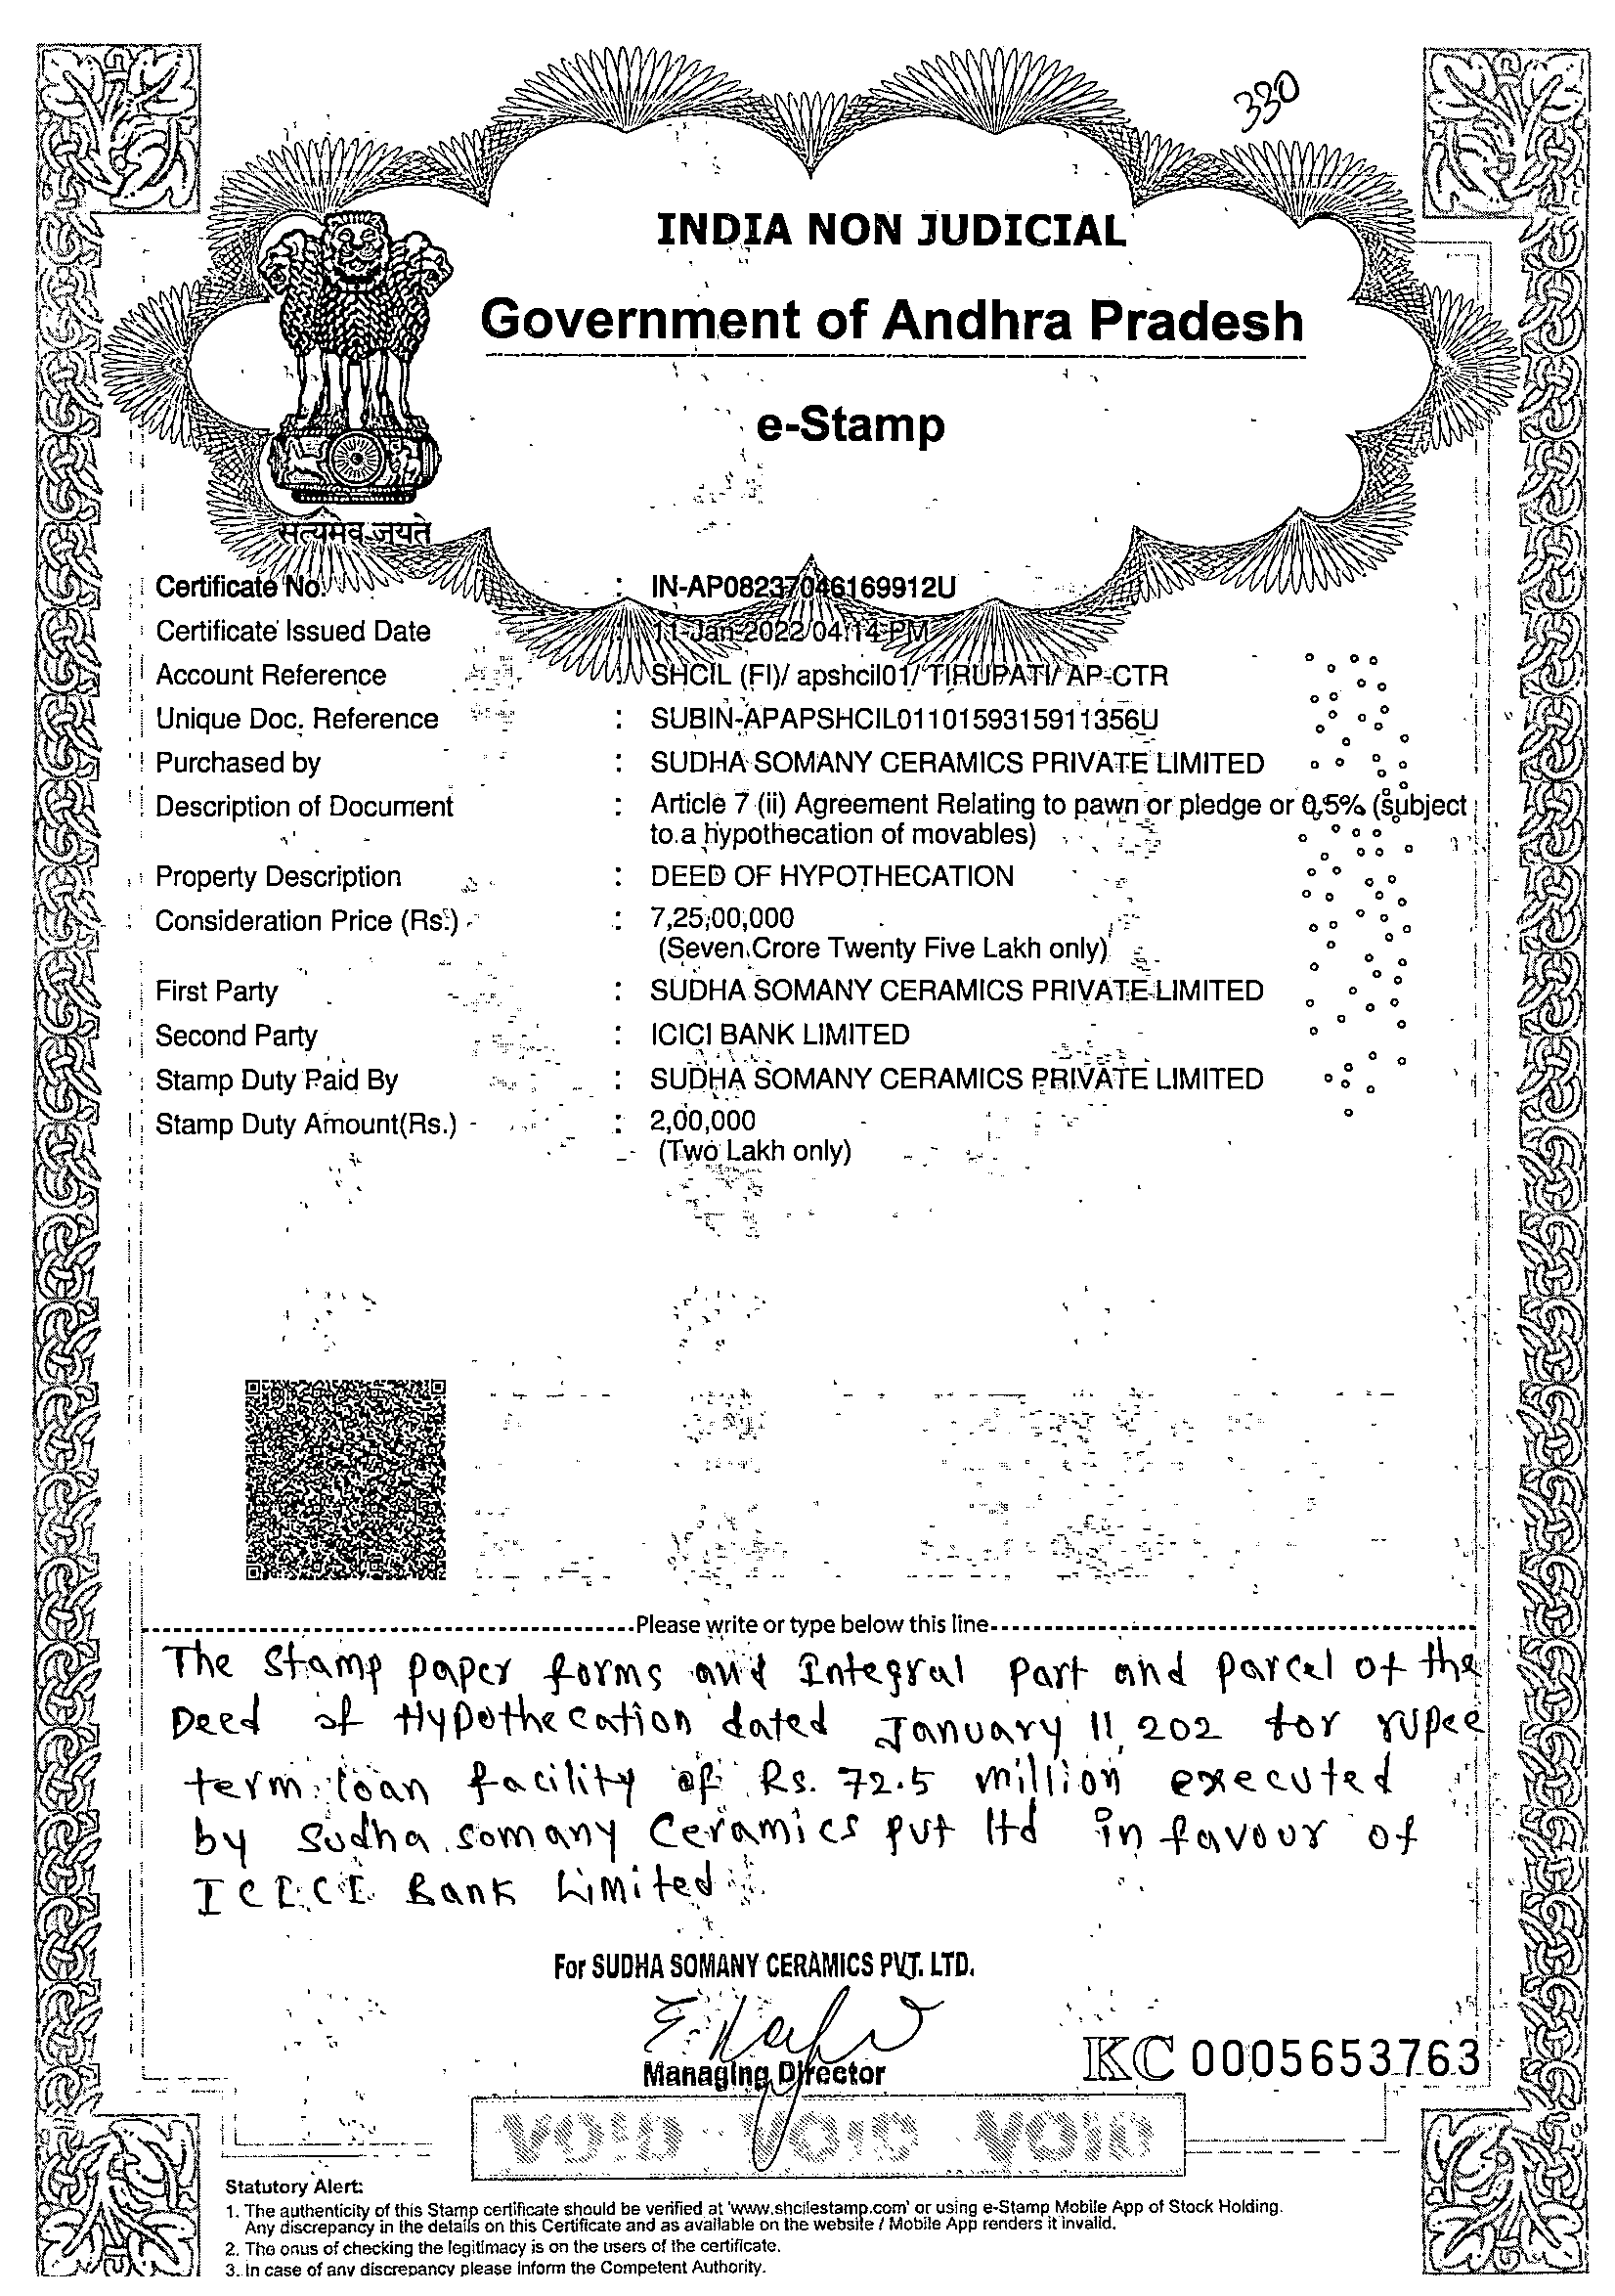 330
INDIA NON JUDICIAL
Government of Andhra Pradesh
e-Stamp
सत्यमेव जयते
Certificate No. : IN-AP08237046169912U
Certificate Issued Date : 11-Jan-2022 04:14 PM
Account Reference : SHCIL (FI)/ apshcil01/ TIRUPATI/ AP-CTR
Unique Doc. Reference : SUBIN-APAPSHCIL0110159315911356U
Purchased by : SUDHA SOMANY CERAMICS PRIVATE LIMITED
Description of Document : Article 7 (ii) Agreement Relating to pawn or pledge or 0.5% (subject
to a hypothecation of movables)
Property Description : DEED OF HYPOTHECATION
Consideration Price (Rs.) : 7,25,00,000
(Seven Crore Twenty Five Lakh only)
First Party : SUDHA SOMANY CERAMICS PRIVATE LIMITED
Second Party : ICICI BANK LIMITED
Stamp Duty Paid By : SUDHA SOMANY CERAMICS PRIVATE LIMITED
Stamp Duty Amount(Rs.) : 2,00,000
(Two Lakh only)
Please write or type below this line
The Stamp paper forms and Integral part and parcel of the
Deed of Hypothecation dated January 11, 202 for rupee
term loan facility of Rs. 72.5 million executed
by Sudha somany Ceramics pvt ltd in favour of
ICICI Bank Limited
For SUDHA SOMANY CERAMICS PVT. LTD.
Managing Director
KC 0005653763
VOID VOID VOID
Statutory Alert:
1. The authenticity of this Stamp certificate should be verified at 'www.shcilestamp.com' or using e-Stamp Mobile App of Stock Holding.
Any discrepancy in the details on this Certificate and as available on the website / Mobile App renders it invalid.
2. The onus of checking the legitimacy is on the users of the certificate.
3. In case of any discrepancy please inform the Competent Authority.